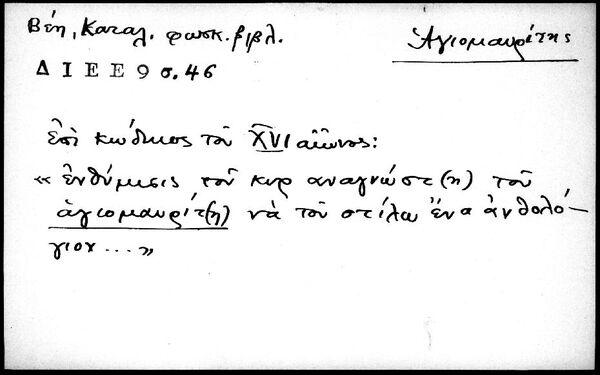 Βέη, Καταλ. φωσκ. βιβλ.
Ἁγιομαυρίτης
Δ Ι Ε Ε 9 σ. 46
ἐπὶ κώδικος τοῦ XVI αἰῶνος:
« ἐνθύμισις τοῦ κυρ αναγνώστ(η) τοῦ
ἁγιομαυρίτ(η) νὰ τοῦ στίλω ἕνα ἀνθολό-
γιον ... »